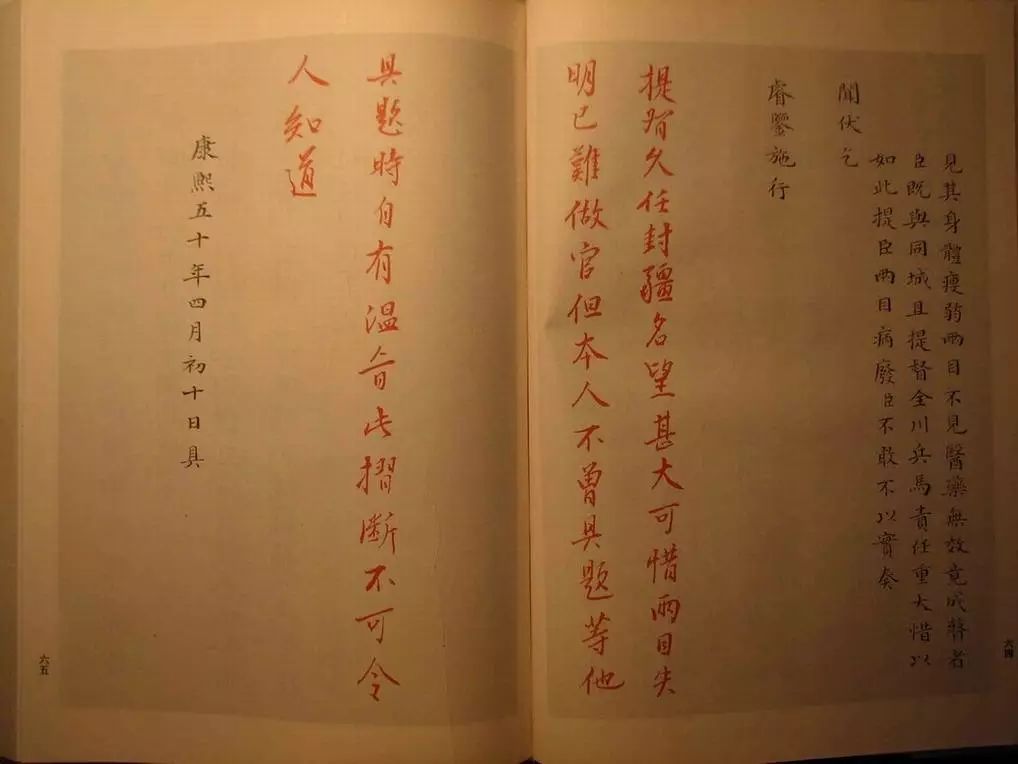 見其身體瘦弱兩目不見醫藥無效竟成瞽者
臣既與同城且提督全川兵馬責任重大惜以
如此提臣兩目病廢臣不敢不以實奏
聞伏乞
睿鑒施行
提督久任封疆名望甚大可惜兩目失
明已難做官但本人不曾具題等他
六四
具題時自有溫旨此摺斷不可令
人知道
康熙五十年四月初十日具
六五